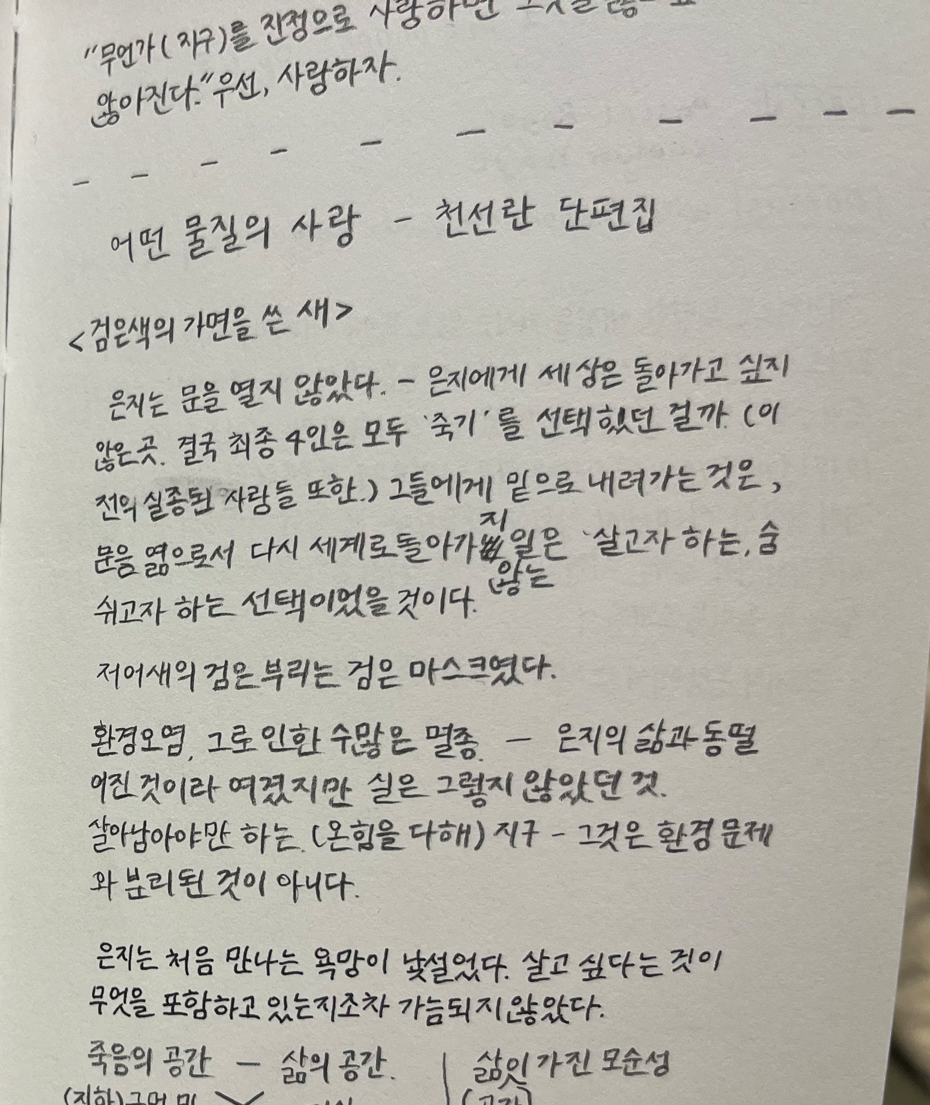 "무언가(지구)를 진정으로 사랑하면
않아진다." 우선, 사랑하자.
어떤 물질의 사랑 - 천선란 단편집
<검은색의 가면을 쓴 새>
은지는 문을 열지 않았다. - 은지에게 세상은 돌아가고 싶지
않은 곳. 결국 최종 4인은 모두 '죽기'를 선택했던 걸까. (이
전의 실종된 사람들 또한.) 그들에게 밑으로 내려가는 것은,
문음 엶으로서 다시 세계로 돌아가지 않는 일은 '살고자 하는, 숨
쉬고자 하는 선택이었을 것이다.
저어새의 검은 부리는 검은 마스크였다.
환경오염, 그로 인한 수많은 멸종. - 은지의 삶과 동떨
어진 것이라 여겼지만 실은 그렇지 않았던 것.
살아남아야만 하는, (온힘을 다해) 지구 - 그것은 환경 문제
와 분리된 것이 아니다.
은지는 처음 만나는 욕망이 낯설었다. 살고 싶다는 것이
무엇을 포함하고 있는지조차 가늠되지 않았다.
죽음의 공간 - 삶의 공간. | 삶이 가진 모순성